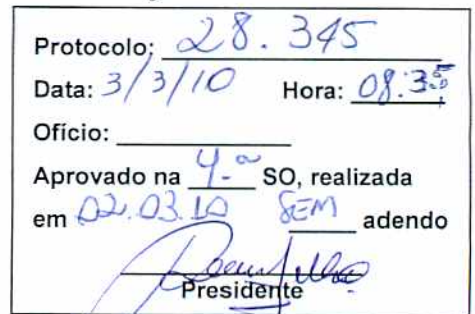 Protocolo: 28.345
Data: 3/3/10 Hora: 08.35
Ofício:
Aprovado na 4.ª SO, realizada
em 02.03.10 SEM adendo
Presidente